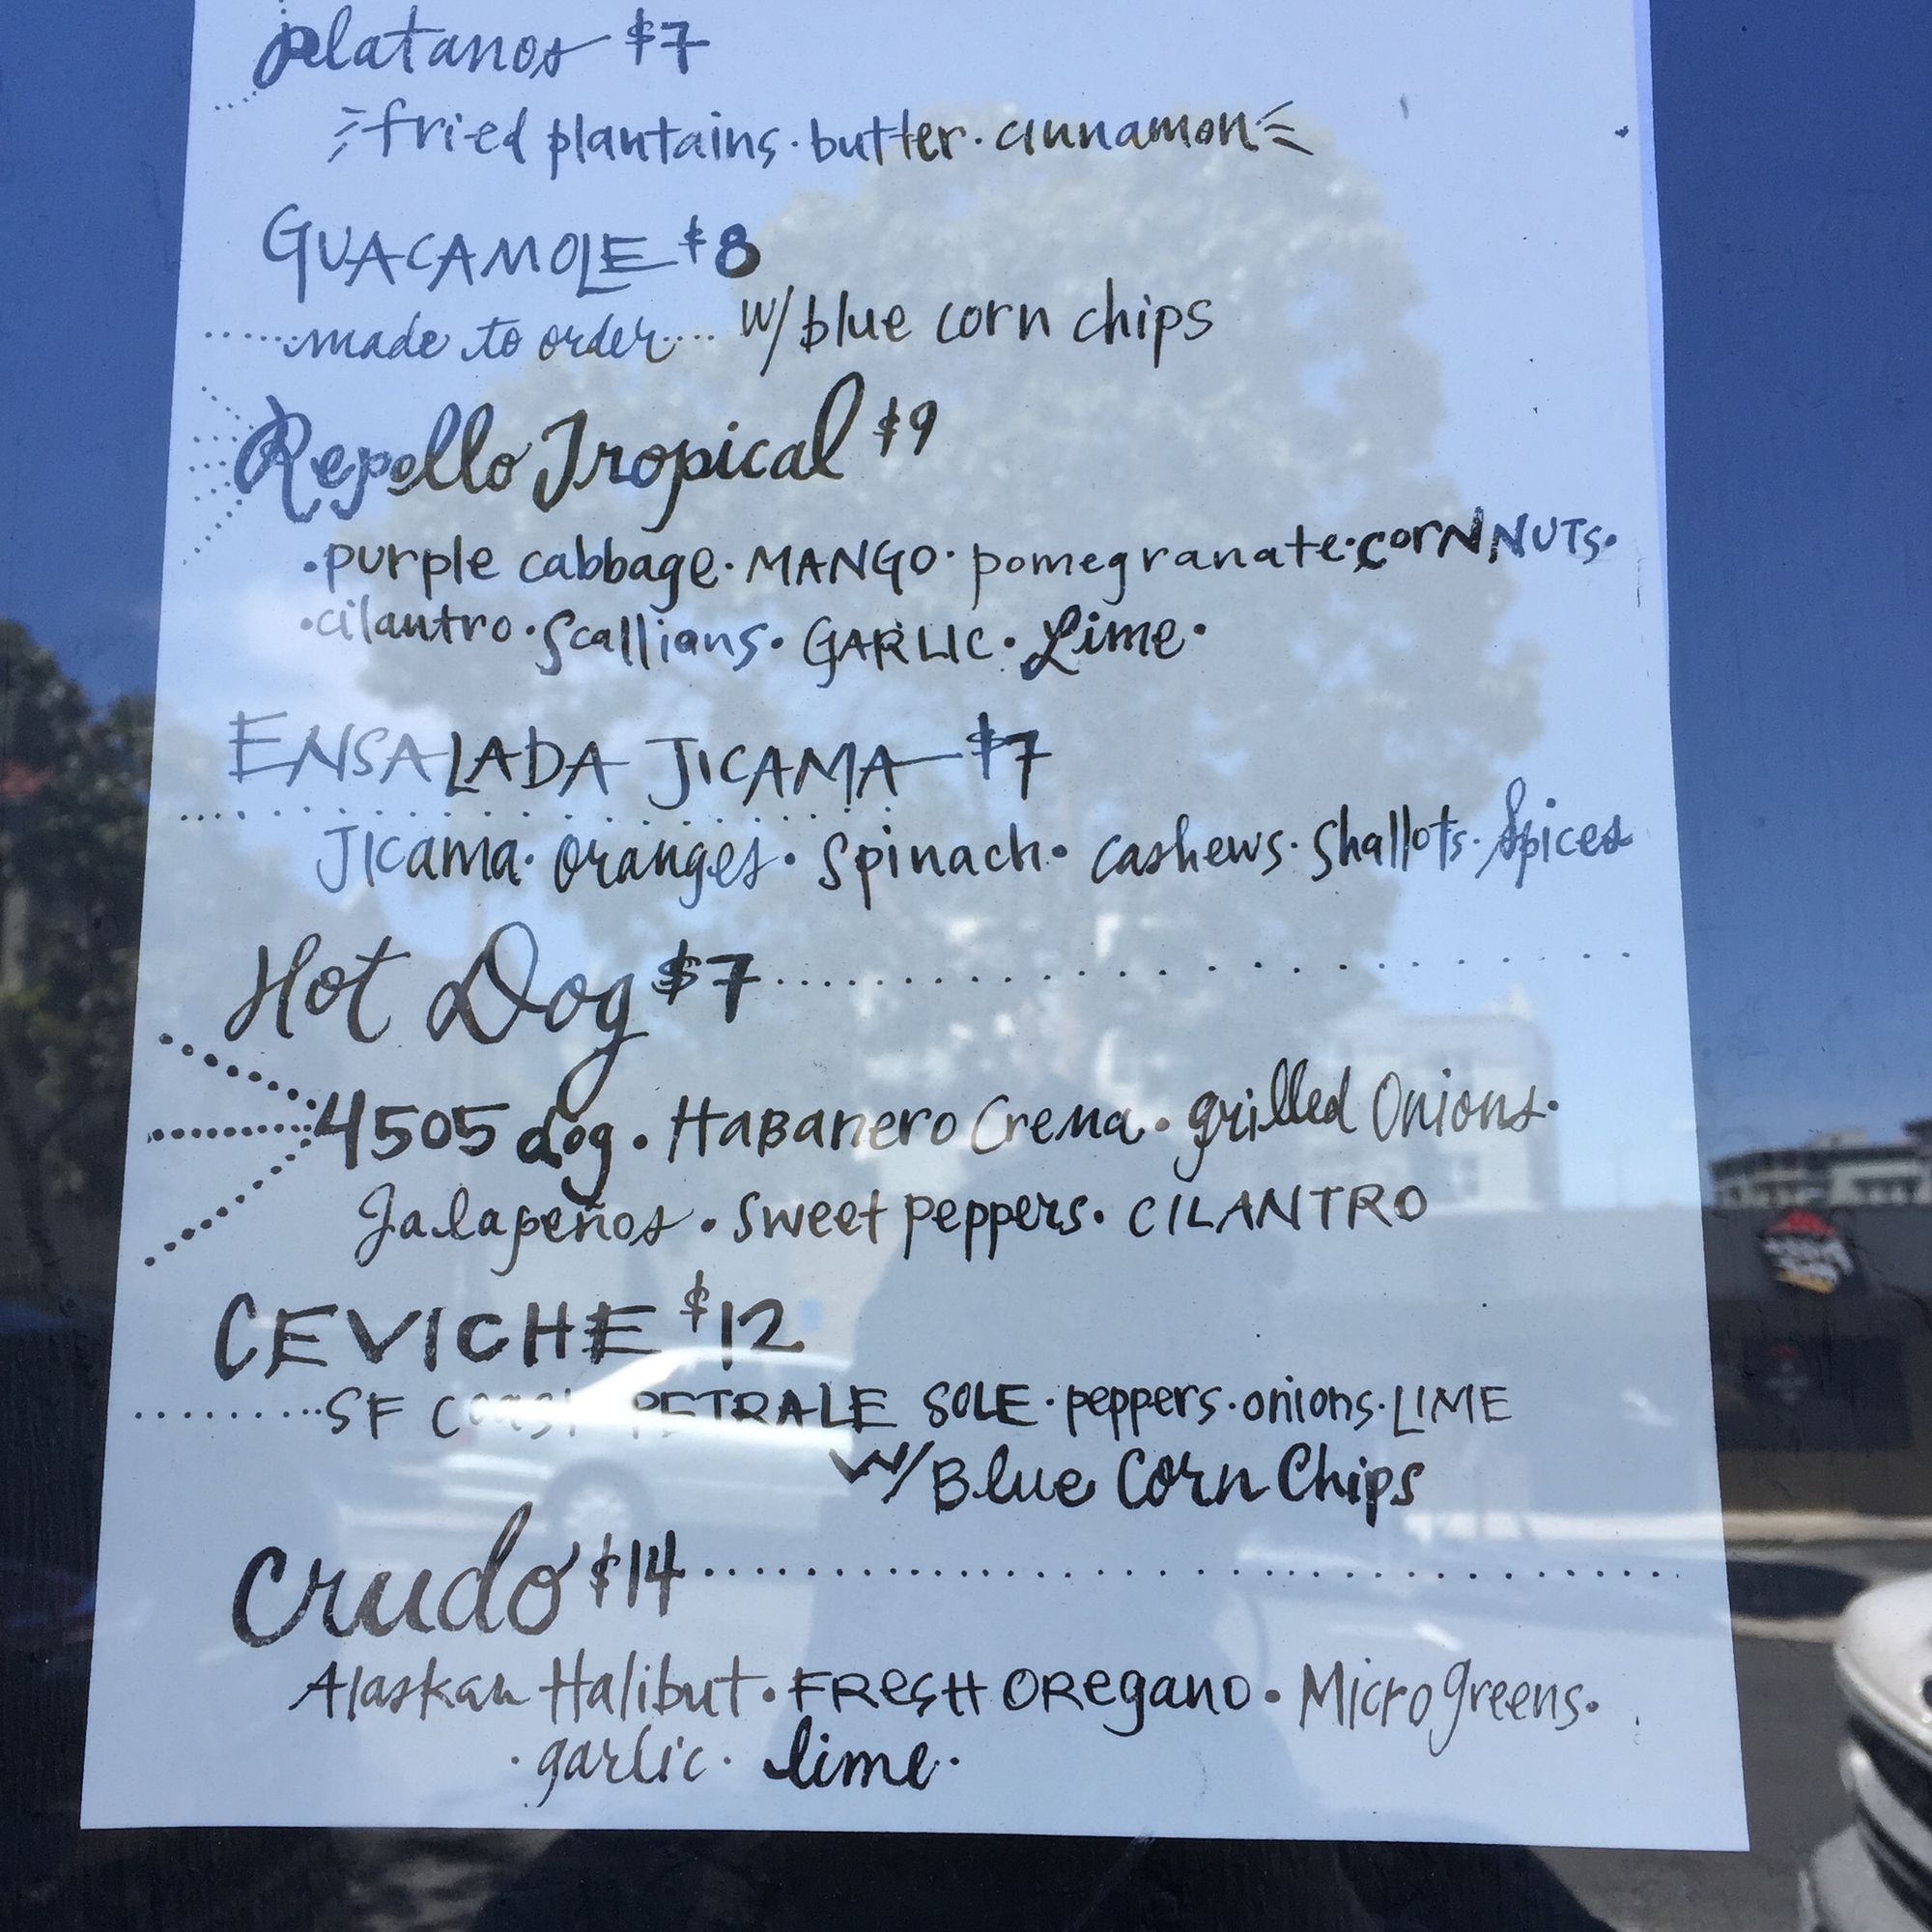 platanos $7
fried plantains · butter · cinnamon
GUACAMOLE $8
made to order w/ blue corn chips
Repollo Tropical $9
· purple cabbage · MANGO · pomegranate · CORN NUTS ·
· cilantro · Scallions · GARLIC · Lime ·
ENSALADA JICAMA $7
JIcama · oranges · Spinach · cashews · Shallots · Spices
Hot Dog $7
4505 dog · HaBanero Crema · grilled Onions ·
Jalapeños · sweet peppers · CILANTRO
CEVICHE $12
SF coast PETRALE SOLE · peppers · onions · LIME
W/ Blue Corn Chips
Crudo $14
Alaskan Halibut · FResH ORegano · Micro greens ·
· garlic · lime ·